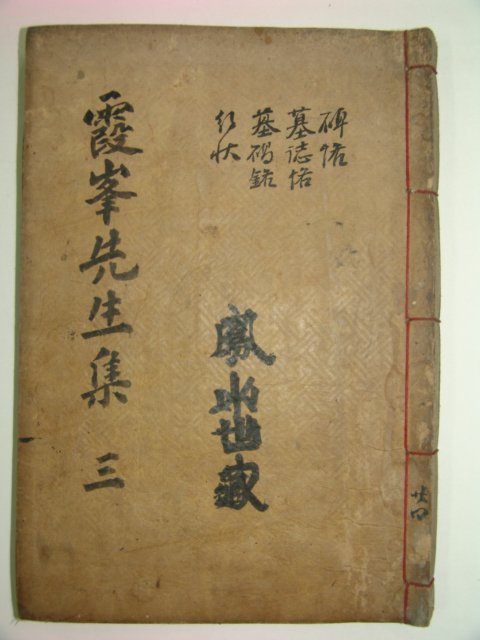 碑銘
墓誌銘
墓碣銘
行狀
鳳山世家
霞峯先生集 三